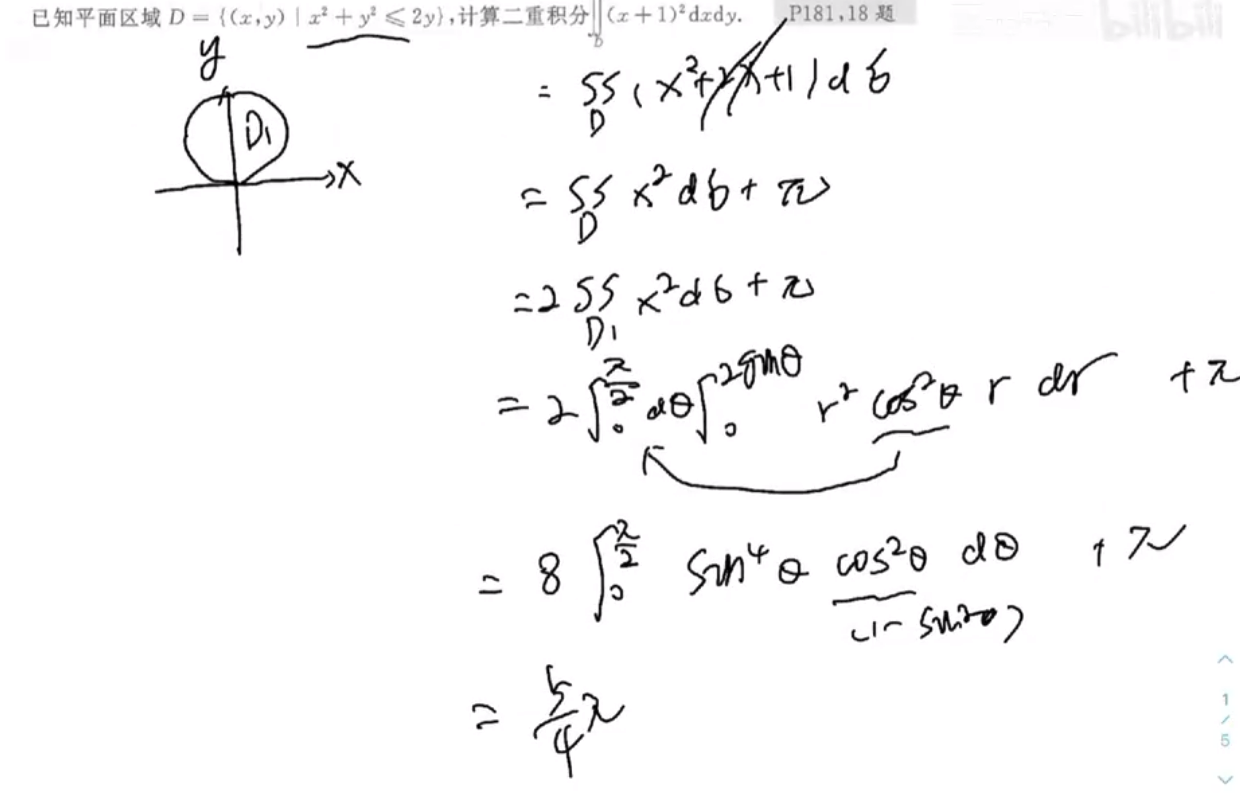 已知平面区域 D = {(x,y) | x² + y² ⩽ 2y},计算二重积分∬_D (x+1)²dxdy. P181,18 题
bilibili
y
D₁
x
= ∬_D (x²+2x+1)dσ
= ∬_D x²dσ + π
= 2∬_{D₁} x²dσ + π
= 2∫₀^{π/2} dθ ∫₀^{2sinθ} r² cos²θ r dr + π
= 8 ∫₀^{π/2} sin⁴θ cos²θ dθ + π
(1- sin²θ)
= 5/4 π
1
/
5